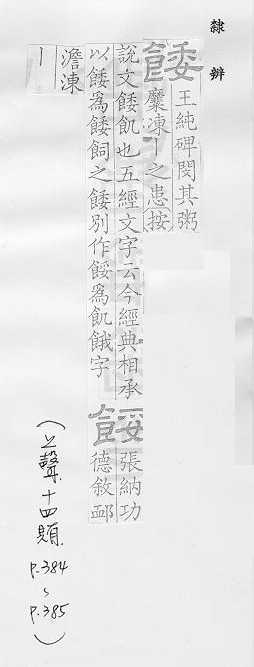 隸辨
餧
王純碑閔其粥
糜凍丨之患按
說文餧飢也五經文字云今經典相承
以餧為餧飼之餧別作餒為飢餓字
餒
張納功
德敘䣝
澹凍
丨
(上聲十四賄
P.384
~
P.385)